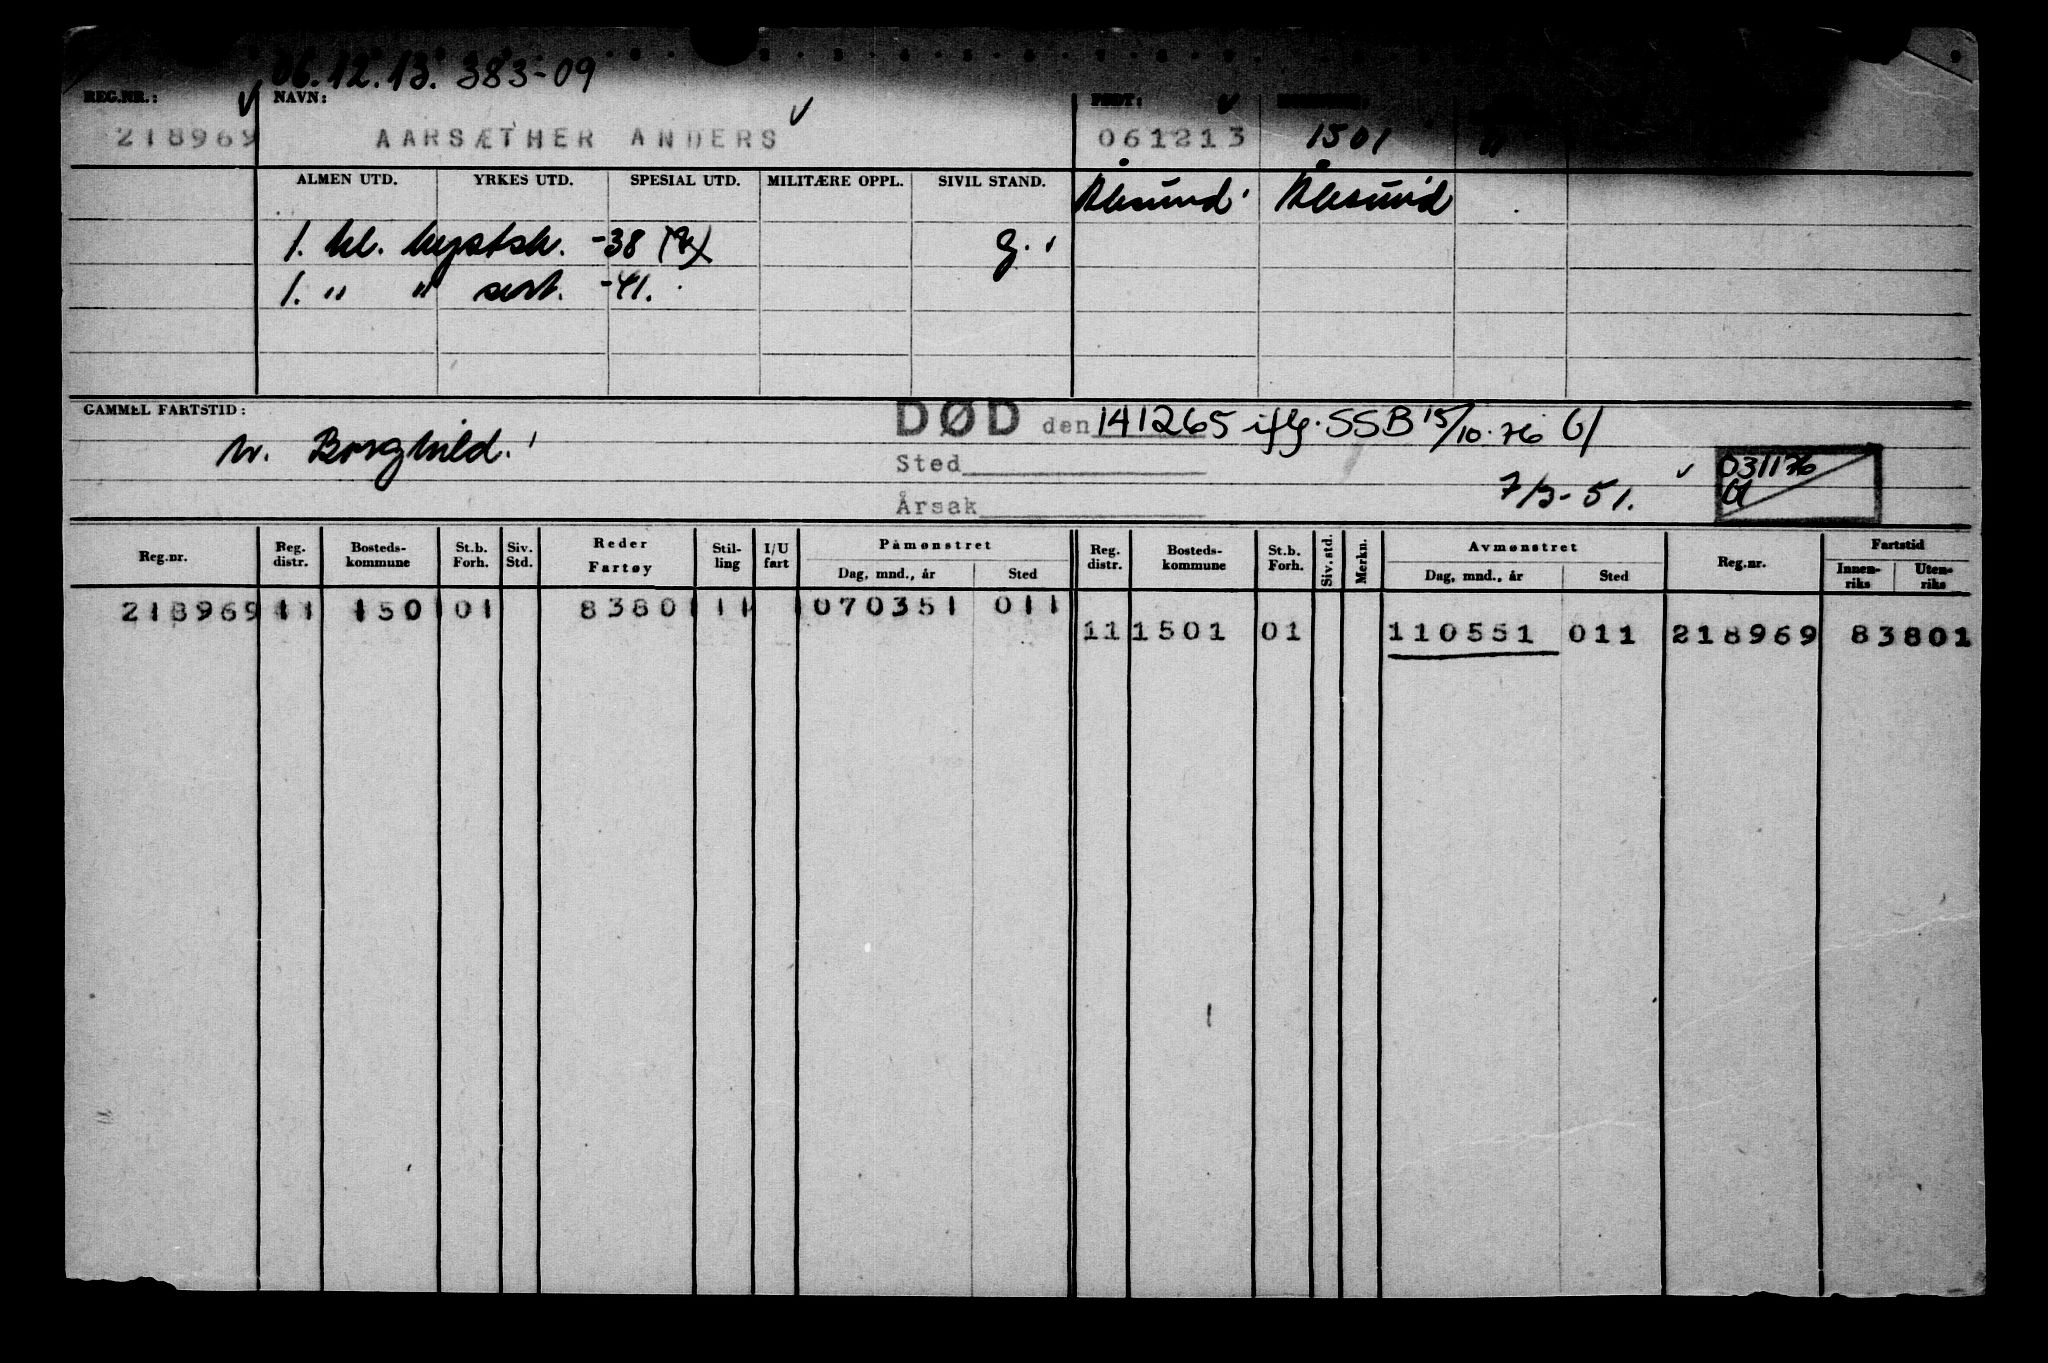 06.12.13. 383-09
REG.NR.: NAVN: FØDT:
218969 AARSÆTHER ANDERS 061213 1501 "
ALMEN UTD. YRKES UTD. SPESIAL UTD. MILITÆRE OPPL. SIVIL STAND. Ålesund Ålesund
1. kl. kystsk. -38 g.
1. " " sert. -41.
GAMMEL FARTSTID: DØD den 141265 iflg. SSB 15/10.76
Borghild.
Sted 031176
7/3-51.
Årsak
Reg.nr. Reg. distr. Bosteds-kommune St.b. Forh. Siv. Std. Reder Fartøy Stil-ling I/U fart Påmønstret Dag, mnd., år Sted Reg. distr. Bosteds-kommune St.b. Forh. Siv. std. Merkn. Avmønstret Dag, mnd., år Sted Reg.nr. Fartstid Innen-riks Uten-riks
218969 11 150 01 8380 11 070351 011
11 1501 01 110551 011 218969 83801